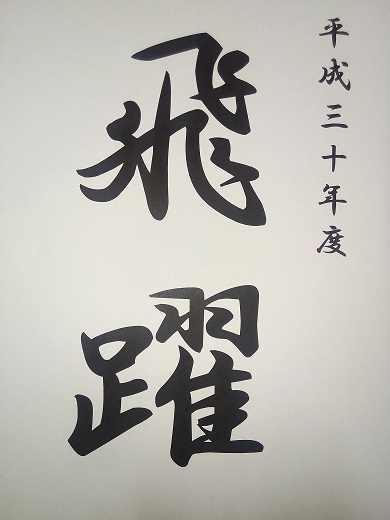 平成三十年度
飛躍